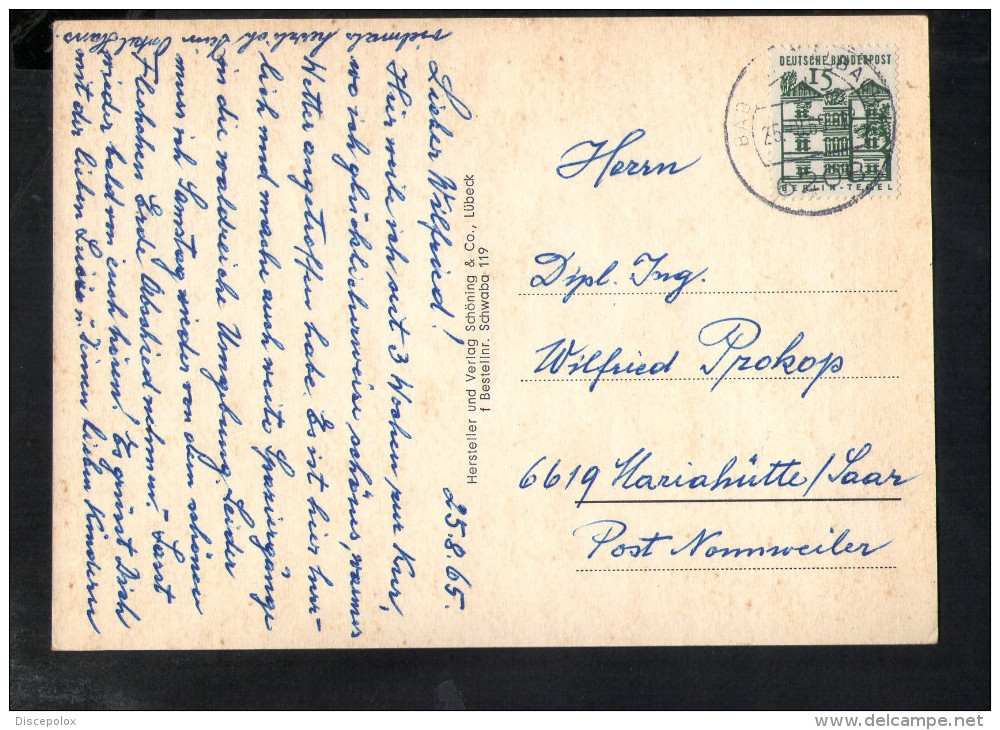 25.8.65.
Lieber Wilfried!
Hier weile ich seit 3 Wochen zur Kur,
wo ich glücklicherweise schönes, warmes
Wetter angetroffen habe. Es ist hier herr-
lich und mache auch weite Spaziergänge
in die waldreiche Umgebung. Leider
muss ich Samstag wieder von dem schönen
Fleckchen Erde Abschied nehmen. Lasst
wieder bald von euch hören! Es grüsst Dich
mit der lieben u. Deinen lieben Kindern
vielmals herzlich Dein Onkel Hans.
Hersteller und Verlag Schöning & Co., Lübeck
f Bestellnr. Schwaba 119
DEUTSCHE BUNDESPOST
15
BERLIN-TEGEL
BAD
Herrn
Dipl. Ing.
Wilfried Prokop
6619 Mariahütte/Saar
Post Nonnweiler
Discepolox
delcampe.net